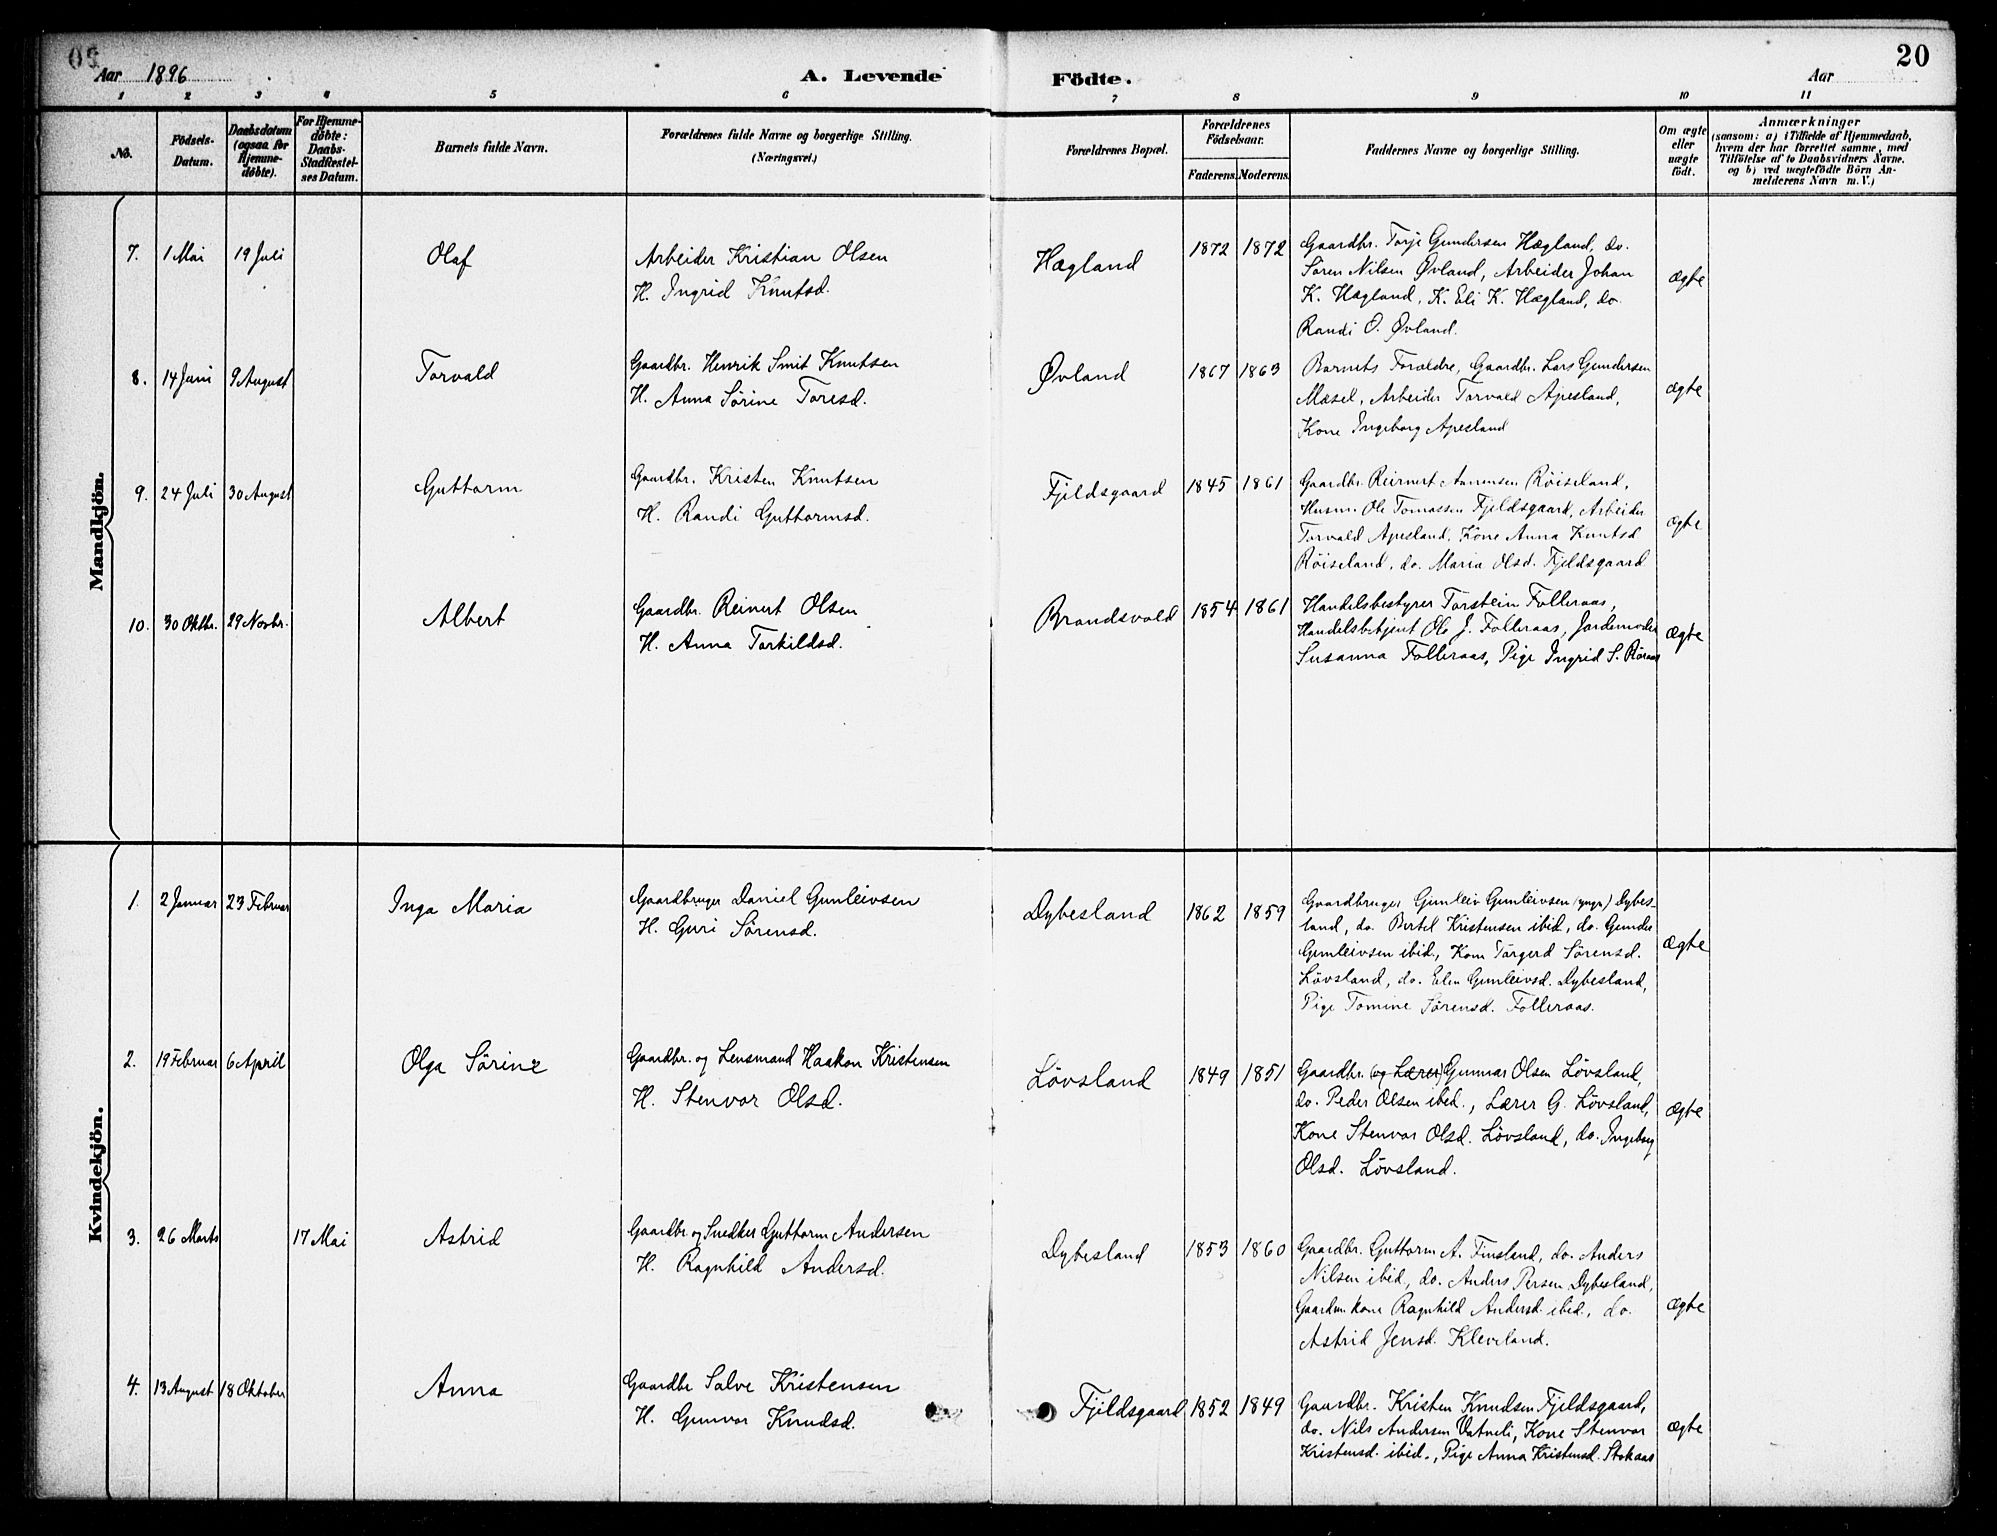 20
Aar 1896
A. Levende Födte.
Aar
1 2 3 4 5 6 7 8 9 10 11
No.
Födsels-
Datum.
Daabsdatum
(ogsaa for
Hjemme-
døbte).
For Hjemme-
døbte:
Daabs-
Stadfæstel-
ses Datum.
Barnets fulde Navn.
Forældrenes fulde Navne og borgerlige Stilling.
(Næringsvei.)
Forældrenes Bopæl.
Forældrenes
Födselsaar.
Faderens. Moderens.
Faddernes Navne og borgerlige Stilling.
Om ægte
eller
uægte
født.
Anmærkninger
(saasom: a) i Tilfælde af Hjemmedaab,
hvem der har forrettet samme, med
Tilföielse af to Daabsvidners Navne.
og b) ved uægtefödte Börn An-
melderens Navn m. V.)
Mandkjön.
7. 1 Mai 19 Juli Olaf
Arbeider Kristian Olsen
H. Ingrid Knutsd.
Hægland 1872 1872
Gaardbr. Torje Gundersen Hægland, do.
Søren Nilsen Øvland, Arbeider Johan
K. Hægland, K. Eli K. Hægland, do.
Randi O. Øvland.
ægte
8. 14 Juni 9 August Torvald
Gaardbr. Henrik Smit Knutsen
H. Anna Sörine Toresd.
Øvland 1867 1863
Barnets Forældre, Gaardbr. Lars Gundersen
Mæsel, Arbeider Torvald Apesland,
Kone Ingeborg Apesland
ægte
9. 24 Juli 30 August Guttorm
Gaardbr. Kristen Knutsen
H. Randi Guttormsd.
Fjeldsgaard 1845 1861
Gaardbr. Reinert Aanensen Röiseland,
Husm. Ole Tomassen Fjeldsgaard, Arbeider
Torvald Apesland, Kone Anna Knutsd
Röiseland, do. Maria Olsd. Fjeldsgaard
ægte
10. 30 Oktbr. 29 Novbr. Albert
Gaardbr. Reinert Olsen
H. Anna Torkildsd.
Brandsvold 1854 1861
Handelsbestyrer Torstein Folleraas,
Handelsbetjent Ole J. Folleraas, Jordemoder
Susanna Folleraas, Pige Ingrid S. Röraas
ægte
Kvindekjön.
1. 2 Januar 23 Februar Inga Maria
Gaardbruger Daniel Gunleivsen
H. Guri Sörensd.
Dybesland 1862 1859
Gaardbruger Gunleiv Gunleivsen (yngr) Dybes-
land, do. Bertel Kristensen ibid, do. Gunder
Gunleivsen ibid., Kone Törgerd Sörensd.
Lövsland, do. Elen Gunleivsd. Dybesland,
Pige Tomine Sörensd. Folleraas.
ægte
2. 19 Februar 6 April Olga Sörine
Gaardbr. og Lensmand Haakon Kristensen
H. Stenvor Olsd.
Lövsland 1849 1851
Gaardbr. (og Lærer) Gunnar Olsen Lövsland,
do. Peder Olsen ibid., Lærer G. Lövsland,
Kone Stenvor Olsd. Lövsland, do. Ingeborg
Olsd. Lövsland.
ægte
3. 26 Marts 17 Mai Astrid
Gaardbr. og Snedker Guttorm Andersen
H. Ragnhild Andersd.
Dybesland 1853 1860
Gaardbr. Guttorm A. Finsland, do. Anders
Nilsen ibid, do. Anders Persen Dybesland,
Gaardm. kone Ragnhild Andersd. ibid., do.
Astrid Jensd. Kleveland.
ægte
4. 13 August 18 Oktober Anna
Gaardbr Salve Kristensen
H. Gunvor Knudsd.
Fjeldsgaard 1852 1849
Gaardbr. Kristen Knudsen Fjeldsgaard,
do. Nils Andersen Vatneli, Kone Stenvor
Kristensd. ibid., Pige Anna Kristensd. Stokaas
ægte